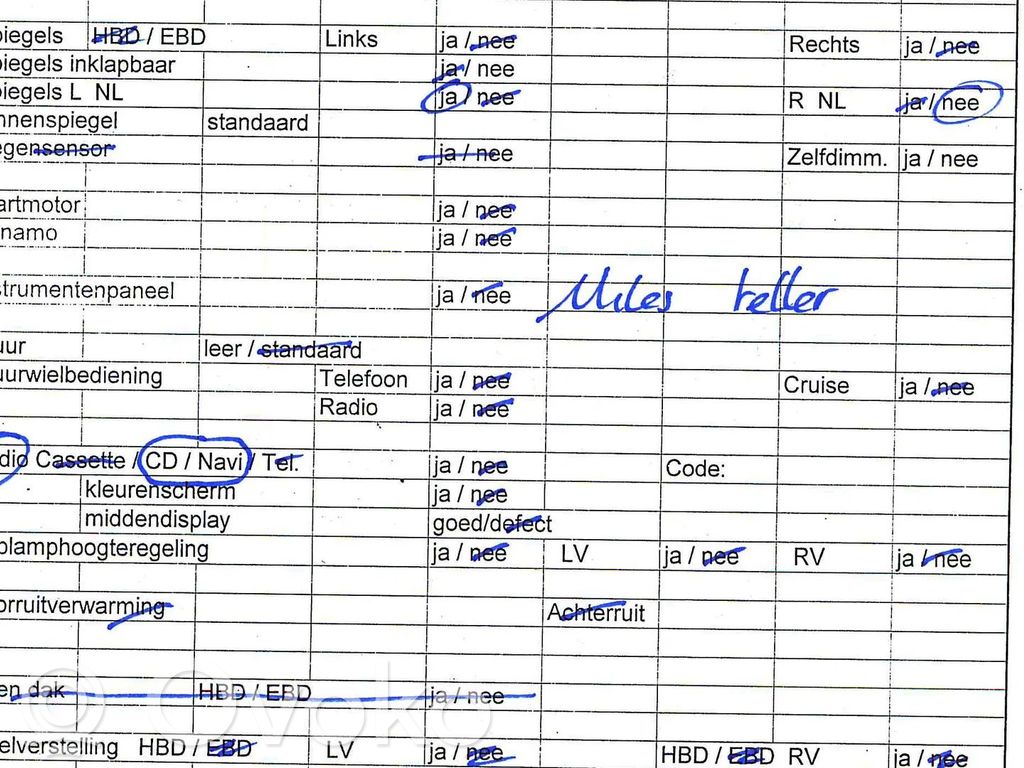 iegels HBD / EBD Links ja / nee Rechts ja / nee
iegels inklapbaar ja / nee
iegels L NL ja / nee R NL ja / nee
nnenspiegel standaard
egensensor ja / nee Zelfdimm. ja / nee
artmotor ja / nee
namo ja / nee
strumentenpaneel ja / nee Miles teller
uur leer / standaard
uurwielbediening Telefoon ja / nee Cruise ja / nee
Radio ja / nee
dio Cassette / CD / Navi / Tel. ja / nee Code:
kleurenscherm ja / nee
middendisplay goed/defect
plamphoogteregeling ja / nee LV ja / nee RV ja / nee
orruitverwarming Achterruit
en dak HBD / EBD ja / nee
© Ovoko
elverstelling HBD / EBD LV ja / nee HBD / EBD RV ja / nee